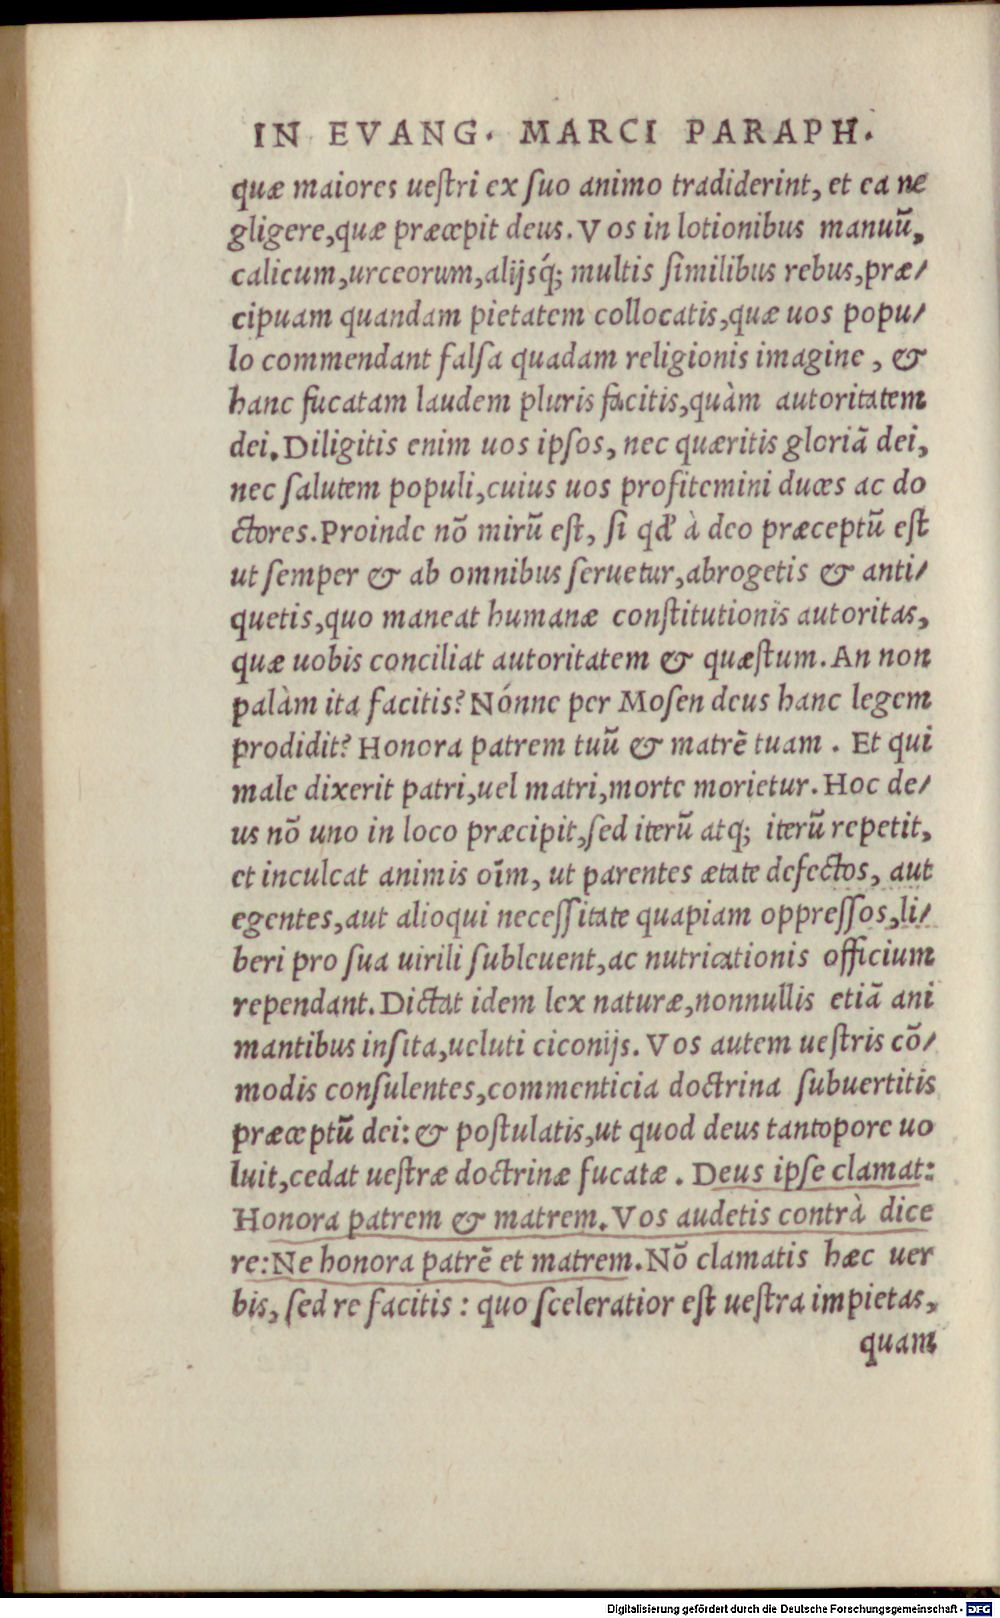 IN EVANG. MARCI PARAPH.
quæ maiores ueſtri ex ſuo animo tradiderint, et ea ne
gligere,quæ præcepit deus. Vos in lotionibus manuũ,
calicum,urceorum,alijsq́; multis ſimilibus rebus,præ/
cipuam quandam pietatem collocatis,quæ uos popu/
lo commendant falſa quadam religionis imagine, &
hanc fucatam laudem pluris facitis,quàm autoritatem
dei. Diligitis enim uos ipſos, nec quæritis gloriã dei,
nec ſalutem populi,cuius uos profitemini duces ac do
ctores. Proinde nõ mirũ eſt, ſi qđ à deo præceptũ eſt
ut ſemper & ab omnibus ſeruetur,abrogetis & anti/
quetis,quo maneat humanæ conſtitutionis autoritas,
quæ uobis conciliat autoritatem & quæſtum. An non
palàm ita facitis? Nónne per Moſen deus hanc legem
prodidit? Honora patrem tuũ & matrẽ tuam. Et qui
male dixerit patri,uel matri,morte morietur. Hoc de/
us nõ uno in loco præcipit,ſed iterũ atq; iterũ repetit,
et inculcat animis oĩm, ut parentes ætate defectos, aut
egentes,aut alioqui neceſſitate quapiam oppreſſos,li/
beri pro ſua uirili ſubleuent,ac nutricationis officium
rependant. Dictat idem lex naturæ,nonnullis etiã ani
mantibus inſita,ueluti ciconijs. Vos autem ueſtris cõ/
modis conſulentes,commenticia doctrina ſubuertitis
præceptũ dei: & poſtulatis,ut quod deus tantopore uo
luit,cedat ueſtræ doctrinæ fucatæ. Deus ipſe clamat:
Honora patrem & matrem. Vos audetis contrà dice
re: Ne honora patrẽ et matrem. Nõ clamatis hæc uer
bis, ſed re facitis: quo ſceleratior eſt ueſtra impietas,
quam
Digitalisierung gefördert durch die Deutsche Forschungsgemeinschaft - DFG